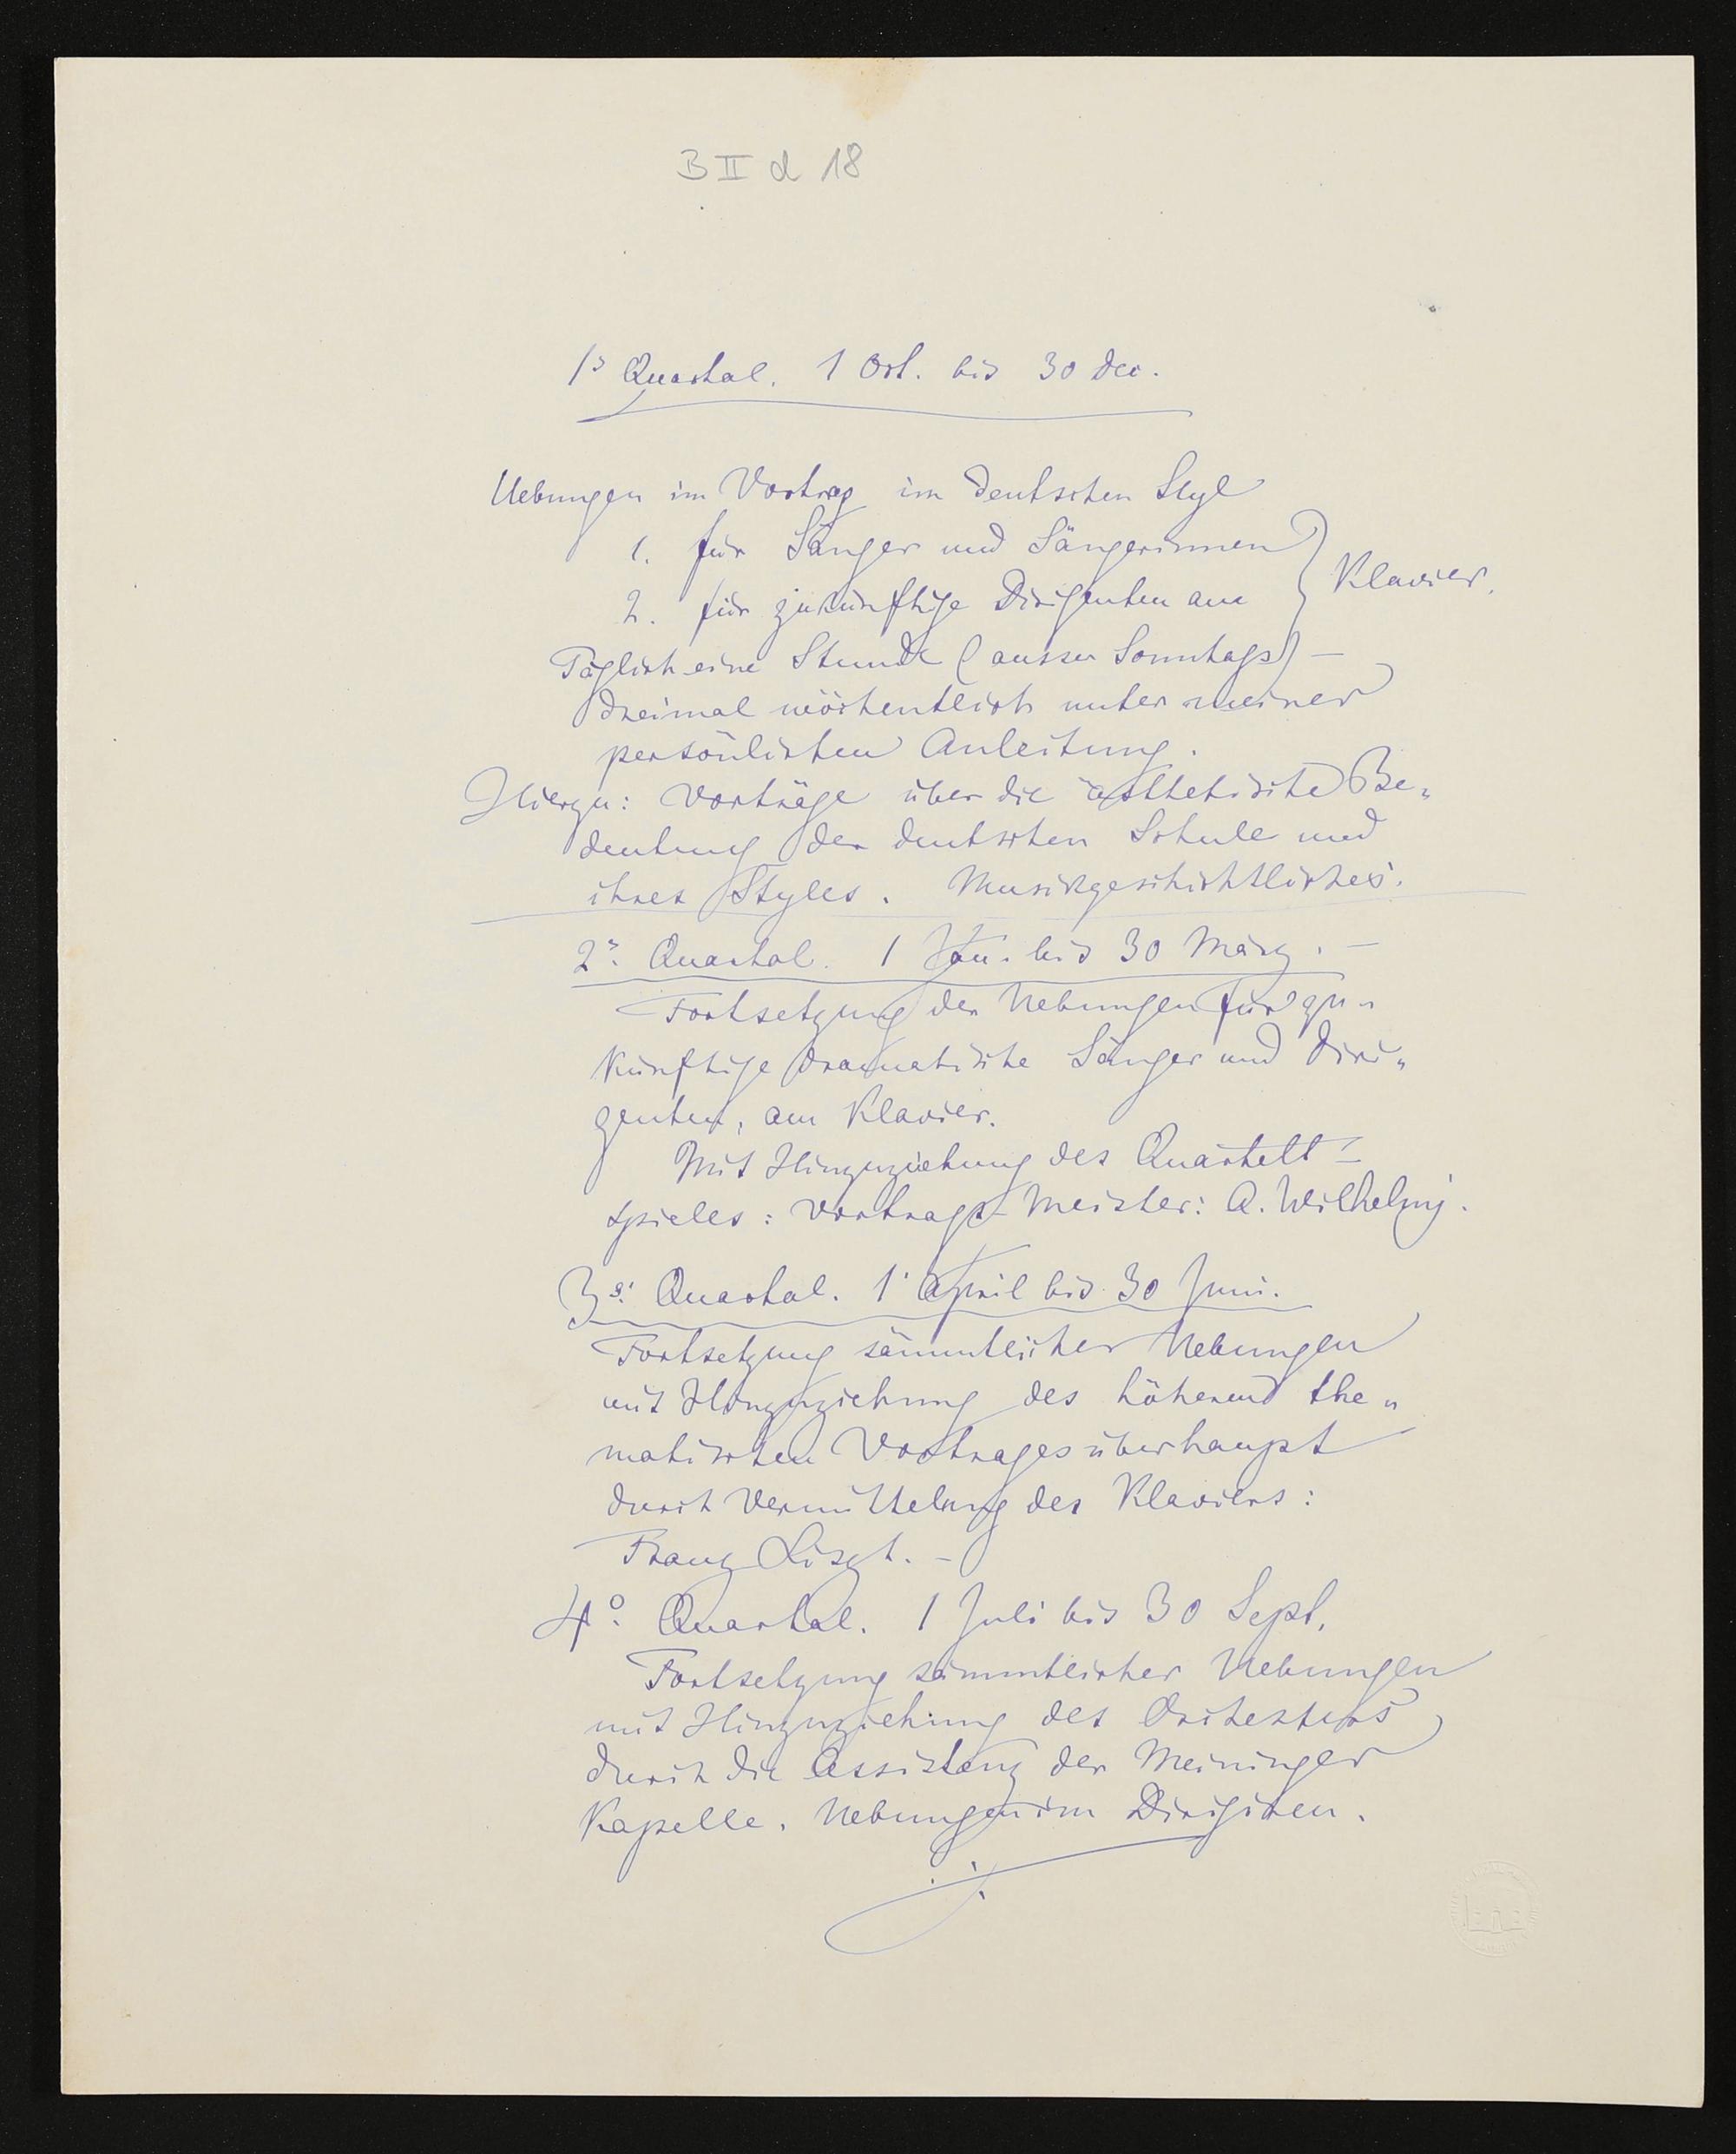 B II d 18
1s Quartal. 1 Oct. bis 30 Dec.
Uebungen im Vortrag im deutschen Styl
1. für Sänger und Sängerinnen
2. für zukünftige Dirigenten am } Klavier.
Täglich eine Stunde (ausser Sonntags) –
dreimal wöchentlich unter meiner
persönlichen Anleitung.
Hierzu: Vorträge über die ästhetische Be„
deutung der deutschen Schule und
ihres Styles. Musikgeschichtliches.
2s. Quartal. 1 Jan. bis 30 März. –
Fortsetzung der Uebungen für zu„
künftige dramatische Sänger und Diri„
genten, am Klavier.
Mit Hinzuziehung des Quartett=
spieles: Vortrags-Meister: A. Wilhelmj.
3s. Quartal. 1 April bis 30 Juni.
Fortsetzung sämmtlicher Uebungen
mit Hinzuziehung des höheren the„
matischen Vortrages überhaupt
durch Vermittelung des Klaviers:
Franz Liszt. –
4o. Quartal. 1 Juli bis 30 Sept.
Fortsetzung sämmtlicher Uebungen
mit Hinzuziehung des Orchesters
durch die Assistenz der Meininger
Kapelle. Uebungen im Dirigiren.